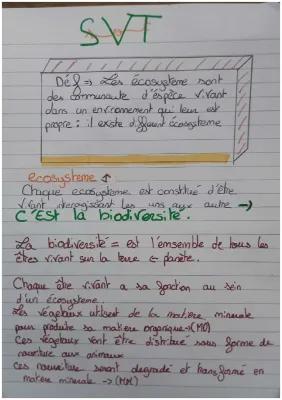 SVT
Déf => Les écosystème sont
des communauté d'éspèce vivant
dans un environnement qui leur est
propre : il existe different écosystème
ecosysteme :
Chaque ecosystème est constitué d'être
vivant interagissant les uns aux autre →
C'EST la biodiversité.
La biodiversité = est l'ensemble de tous les
êtres vivant sur la terre ← planète.
Chaque être vivant a sa fonction au sein
d'un écosystème.
Les végétaux utilisent de la matière minerale
pour produite sa matière organique →(MO)
Ces végétaux vont être distribué sous forme de
nourriture aux animaux
ces nourriture seront degradé et transformé en
matière minerale →(MM)